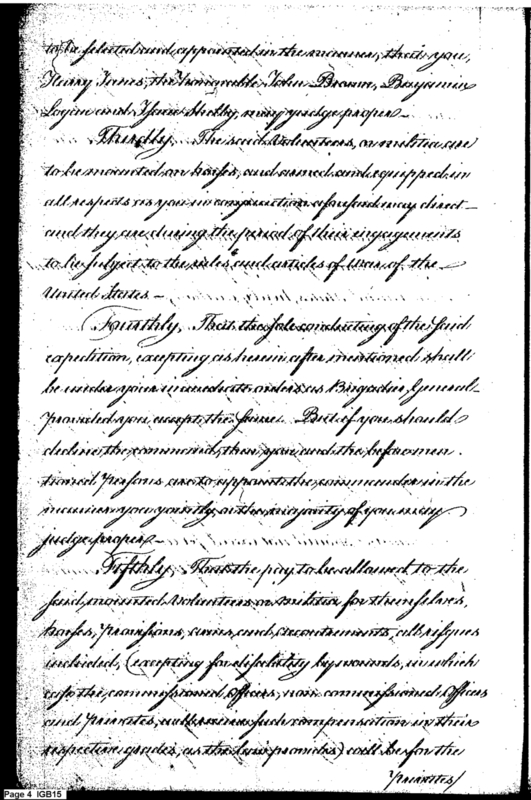 to be selected and appointed in the manner, that you,
Harry Innes, the Honorable John Brown, Benjamin
Logan and Isaac Shelby, may judge proper—
Thirdly, The said Volunteers, or militia are
to be mounted on horses, and armed and equipped in
all respects as you in conjunction aforesaid may direct—
and they are during the period of their engagements
to be subject to the rules and articles of War of the
United States—
Fourthly, That the sole conducting of the said
expedition, excepting as herein after mentioned shall
be under your immediate orders as Brigadier General—
Provided you accept the same. But if you should
decline the command, then you and the beforemen
tioned Persons are to appoint the commander in the
manner you jointly, or the majority of you may
judge proper—
Fifthly, That the pay to be allowed to the
said mounted Volunteers or militia for themselves,
horses, Provisions, arms, and accoutrements, all risques
included, (excepting for disability by wounds, in which
case the commissioned Officers, non commissioned Officers
and Privates, will receive such compensation in their
respective grades, as the law provides) will be for the
Privates/
Page 4 IGB15